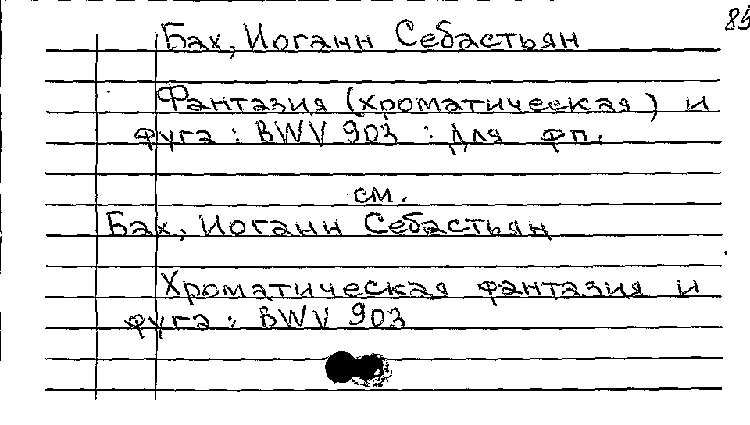 Бах, Иоганн Себастьян
Фантазия (хроматическая) и
фуга : BWV 903 : Для фп.
см.
Бах, Иоганн Себастьян
Хроматическая фантазия и
фуга : BWV 903